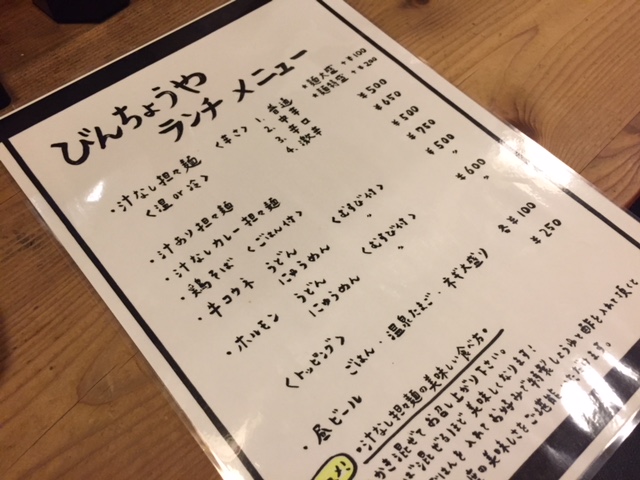 びんちょうや
ランチ メニュー
・麺大盛 +¥100
・麺特盛 +¥200
・汁なし担々麺 <辛さ> 1. 普通 ¥500
<温 or 冷> 2. 中辛
3. 辛口
4. 激辛
・汁あり担々麺 ¥650
・汁なしカレー担々麺 ¥500
・鶏そば <ごはん付> ¥750
・牛コウネ うどん <むすび付> ¥500
にゅうめん 〃 〃
・ホルモン うどん <むすび付> ¥600
にゅうめん 〃 〃
<トッピング> ごはん・温泉たまご・ネギ大盛り 各¥100
・昼ビール ¥250
・汁なし担々麺の美味しい食べ方。
かき混ぜてお召し上がり下さい。
ば混ぜるほど美味しくなります!
ごはんを入れてお好みで特製しょうゆや酢を入れて頂くと
の美味しいをご堪能
ます。